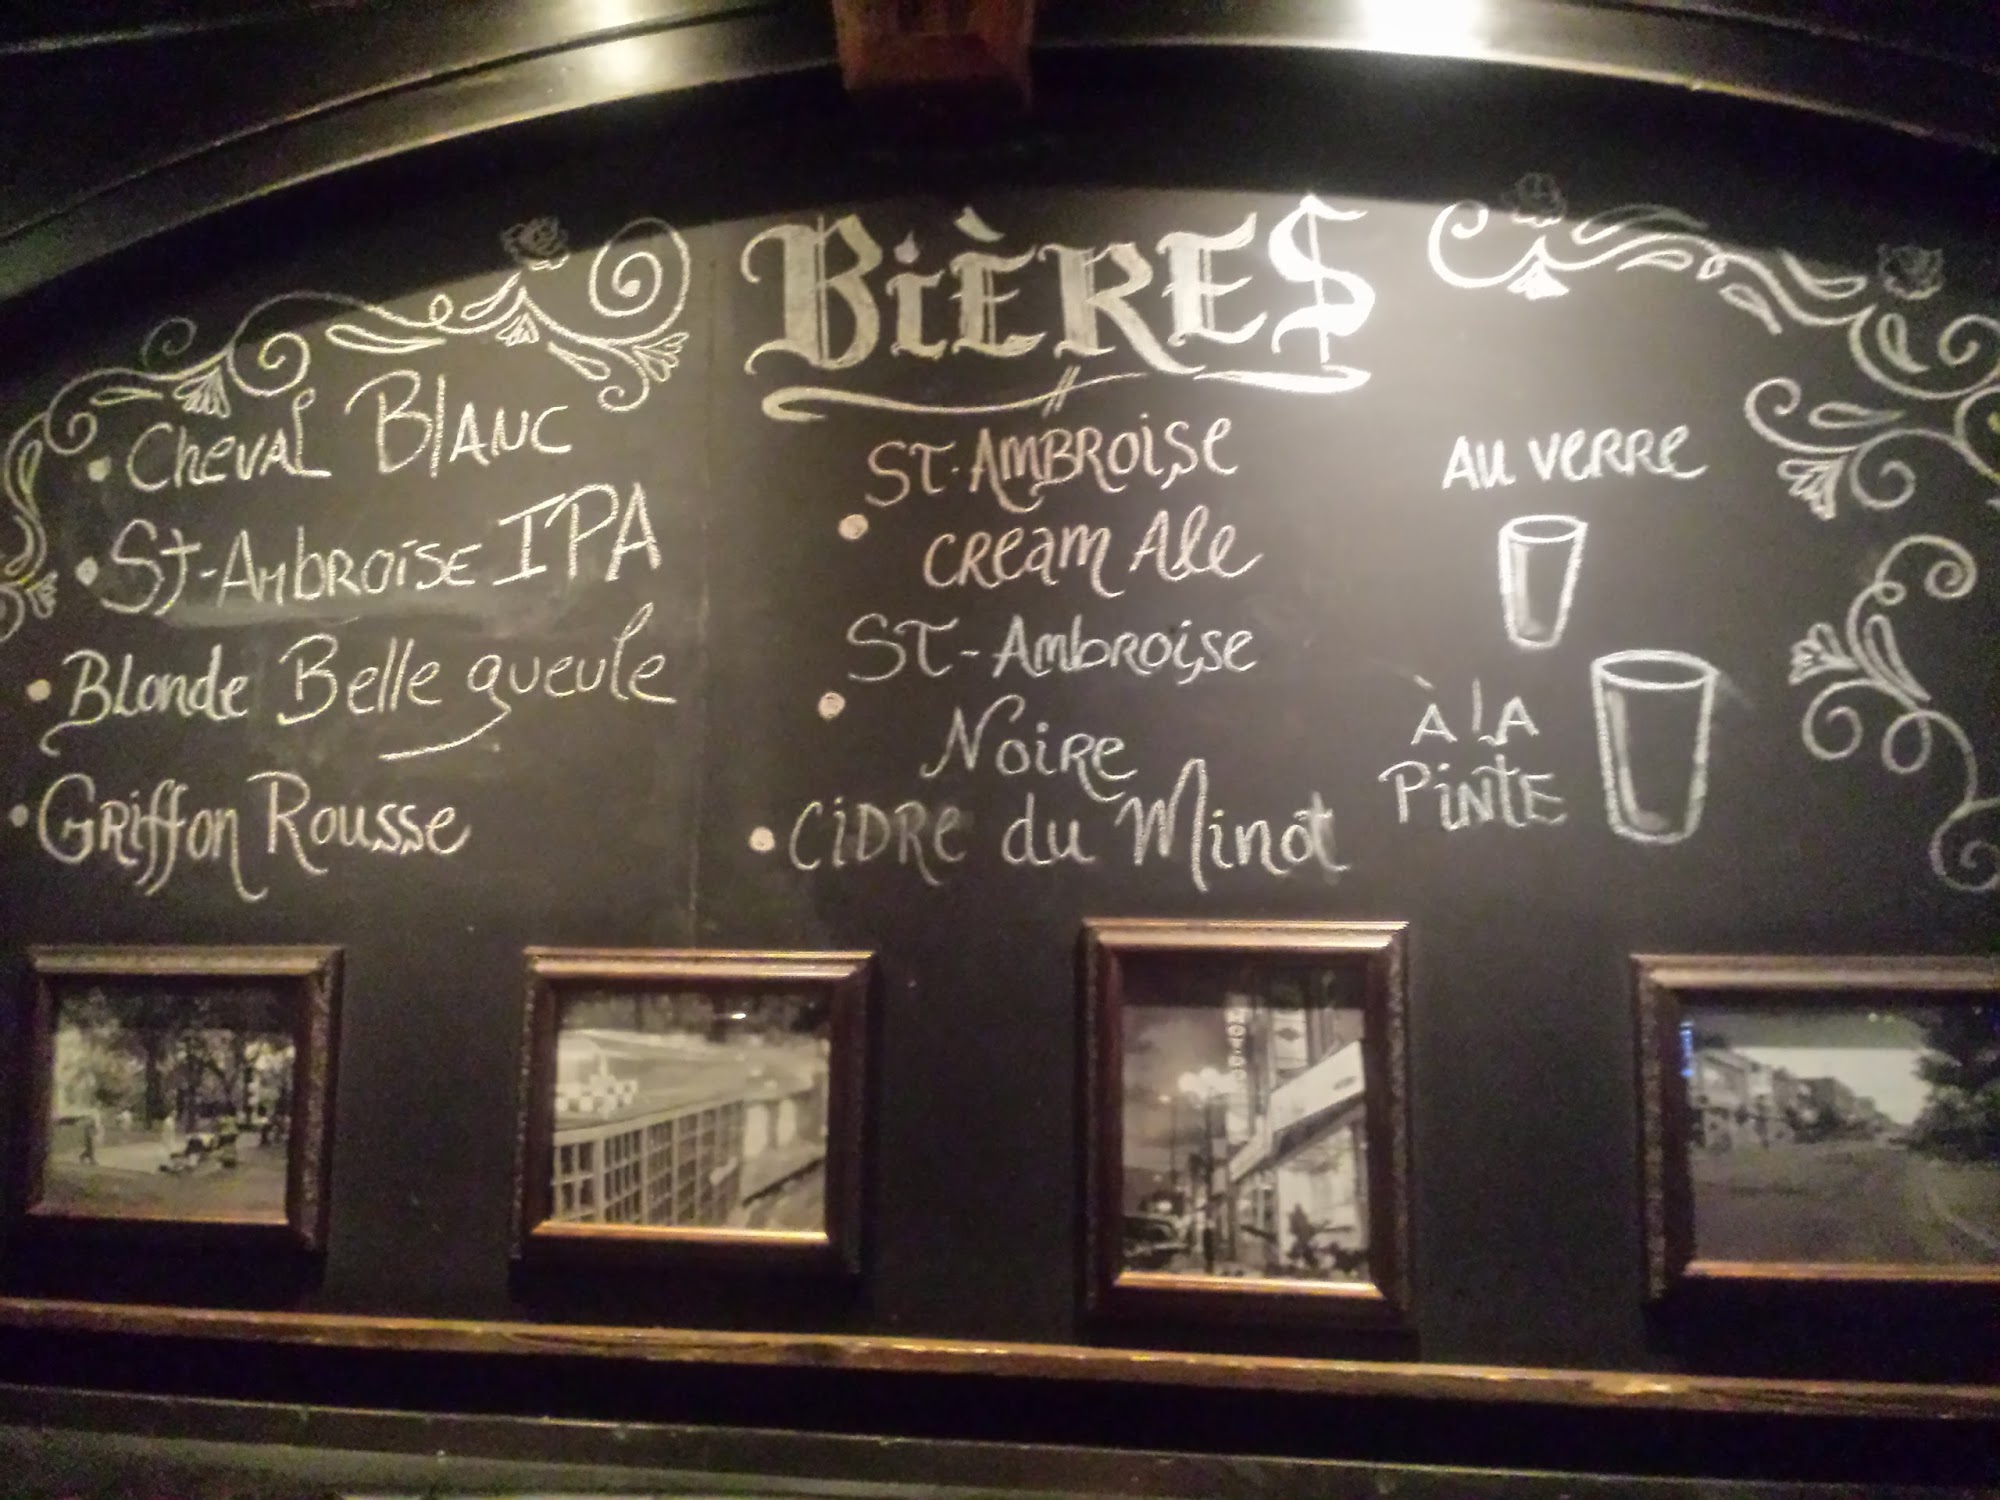 BIÈRES
Cheval Blanc
St-Ambroise IPA
Blonde Belle gueule
Griffon Rousse
ST-AMBROISE
CREAM Ale
ST-Ambroise
Noire
CIDRE du Minot
AU VERRE
À LA
PINTE